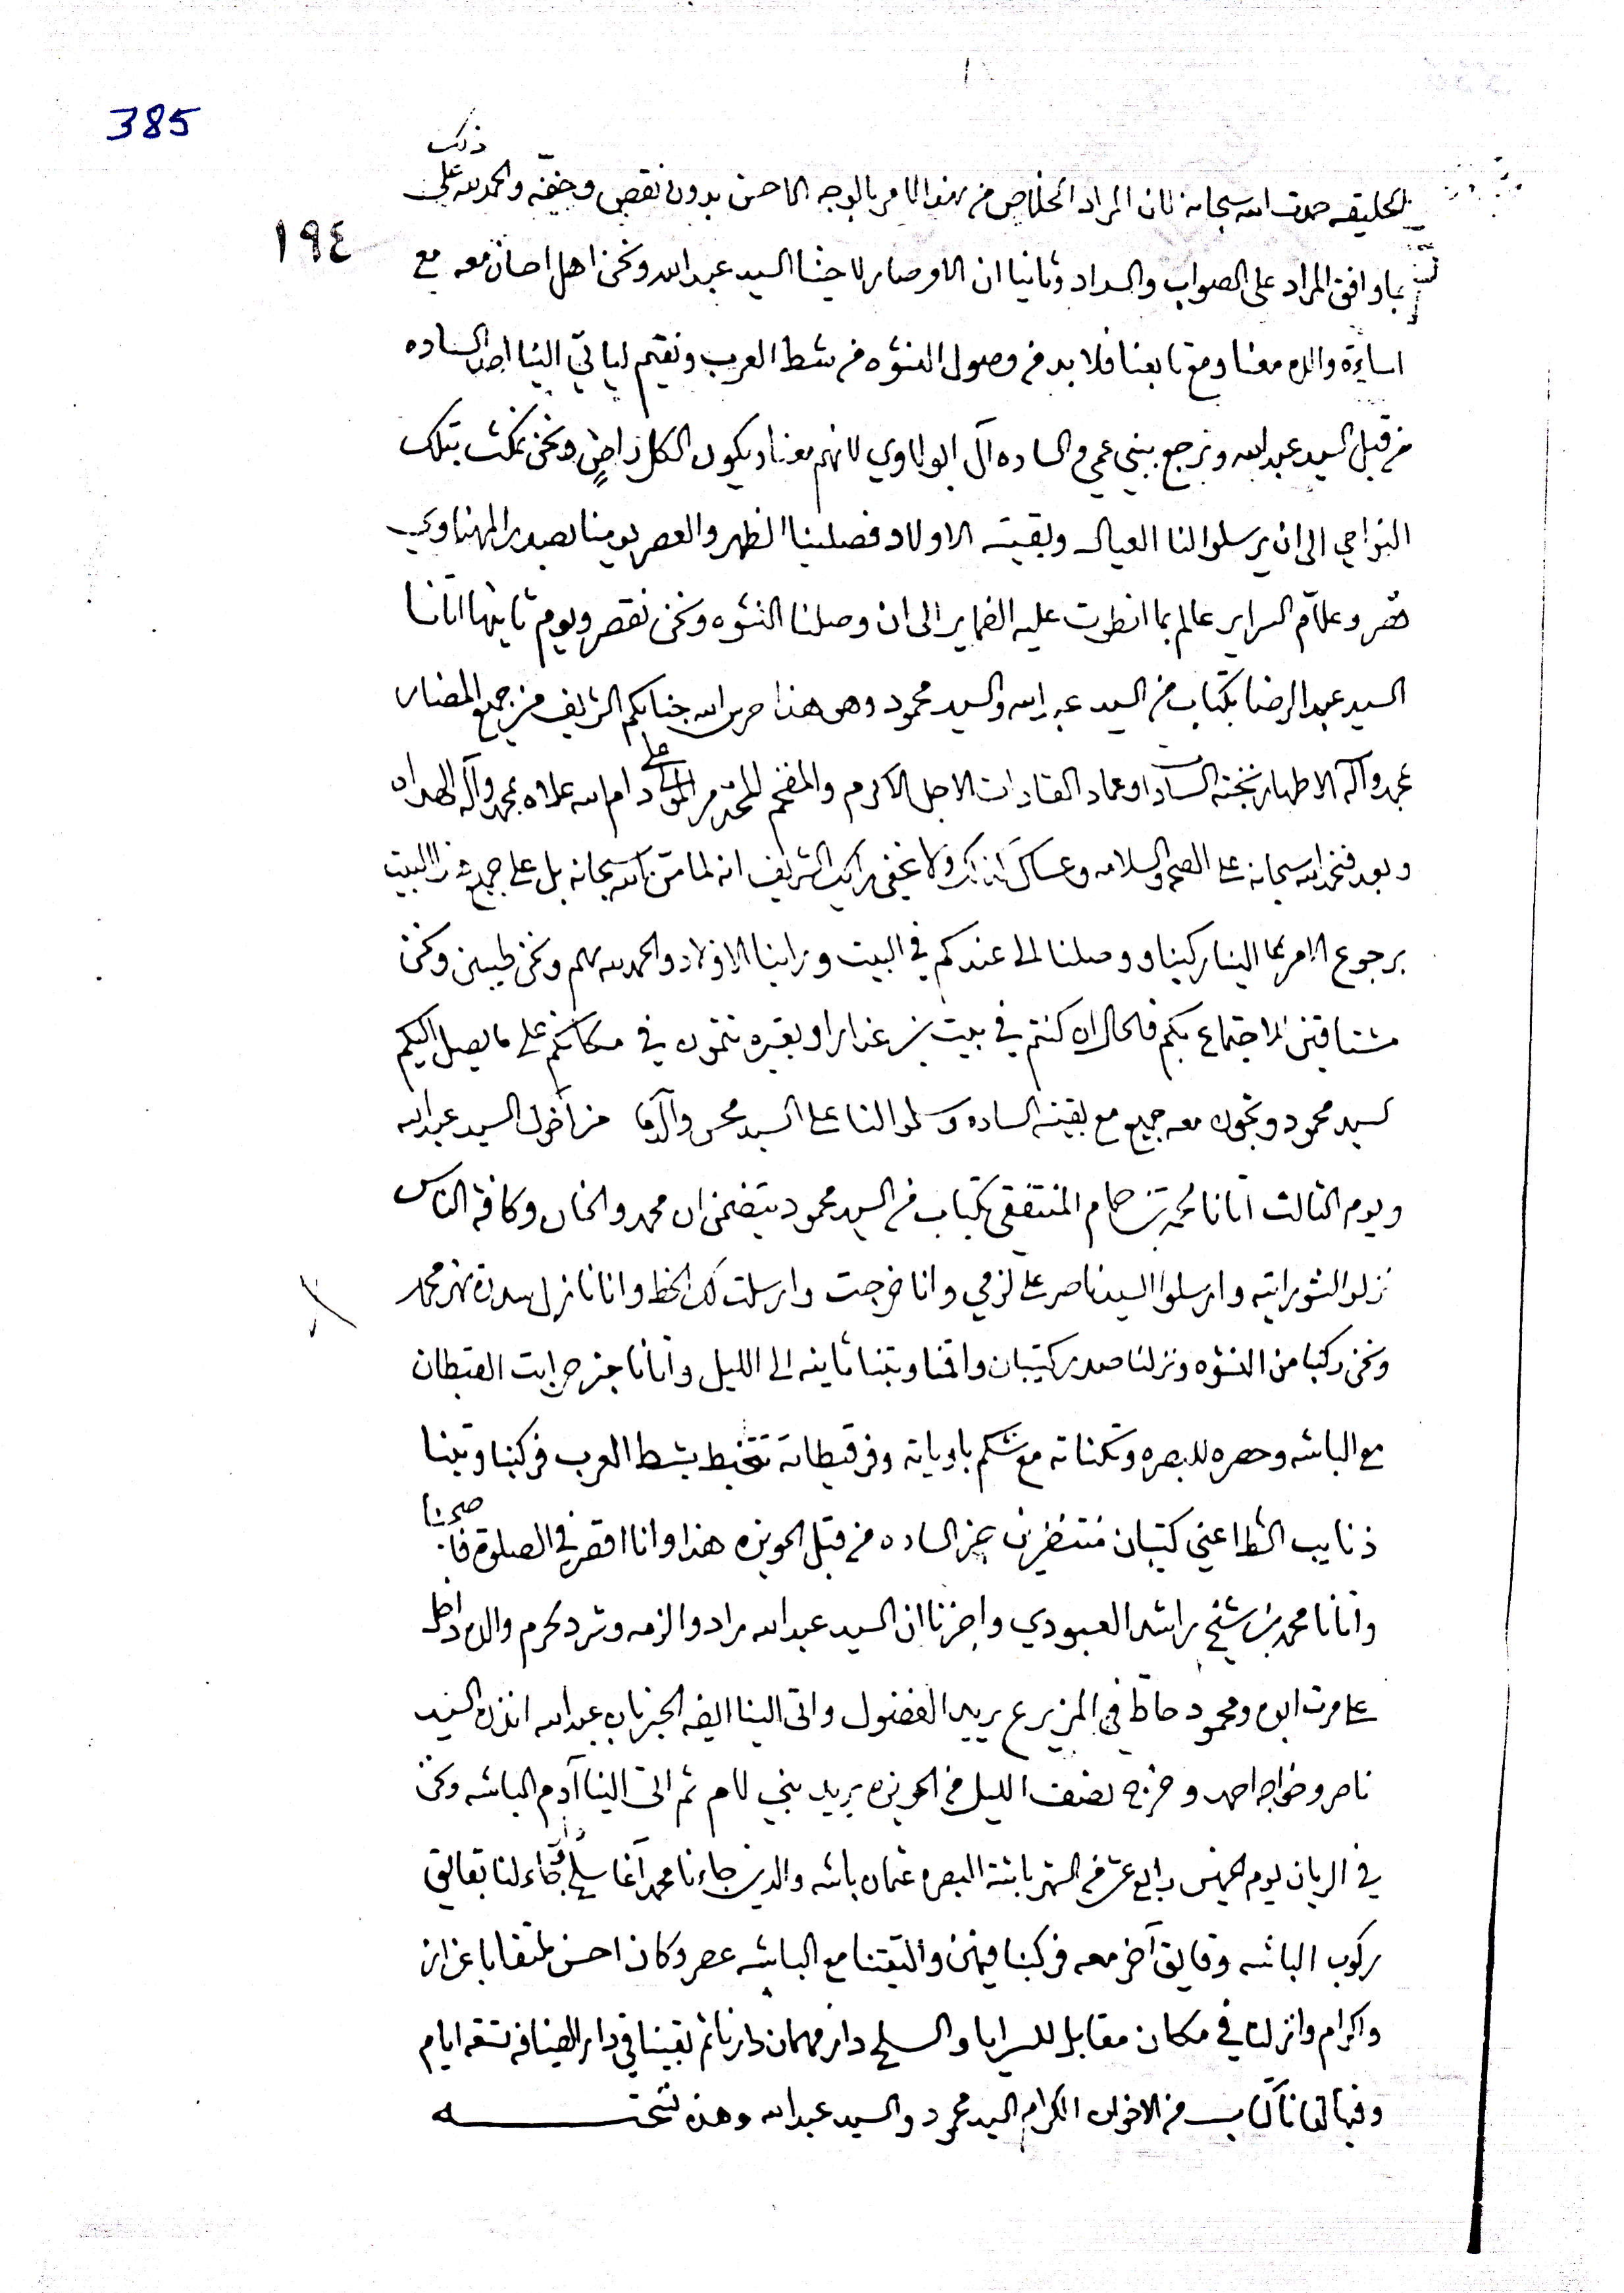 385
ذلك
حمدت الله سبحانه لان المراد الخلاص من هذا الامر بالوجه الاحسن بدون نقص وخفّه والحمد لله على
١٩٤
بما وافق المراد على الصواب والسداد وثانيا ان الامر صار لاخينا السيد عبد الله ونحن اهل احسان معه مع
اساءته والده معنا ومع تابعنا فلا بد من وصول النشوه من شط العرب ونقيم لياتي الينا احد الساده
من قبل السيد عبد الله ونرجع ببني عمي والساده آل ابو لاوي لانهم معنا ويكون الكل راضٍ ونحن نمكث بتلك
النواحي الى ان يرسلوا لنا العيال وبقية الاولاد فصلينا الظهر والعصر يومنا بصدر المهناوي
قصر وعلام السراير عالم بما انطوت عليه الضماير الى ان وصلنا النشوه ونحن نقصر ويوم ثانيها اتانا
السيد عبد الرضا بكتاب من السيد عبد الله والسيد محمود وهو هذا حرس الله جنابكم الشريف من جميع المضار
بمحمد وآله الاطهار نخبة السادات وعماد القادات الاجل الاكرم والمفخم المحترم المولى علي دام الله علاه بمحمد وآله الهداه
وبعد فنحمد الله سبحانه على الصحه والسلامه وعساك كذلك ولا يخفى رايك الشريف انه لما منّ الله سبحانه بل على جميع هذا البيت
برجوع الامر بما الينا ركبنا ووصلنا الى عندكم في البيت وراينا الاولاد والحمد لله كلهم ونحن طيبين ونحن
مشتاقين للاجتماع بكم فالحال ان كنتم في بيت بن غزار او بغيره تتمون في مكانكم على ما يصل اليكم
السيد محمود وتجون معه جميع مع بقية الساده وسلموا لنا على السيد محسن وآلاقا من اخوك السيد عبد الله
ويوم الثالث اتانا محمد بن صمام المنتفقي بكتاب من السيد محمود يتضمن ان محمد والخان وكافة الناس
نزلوا الشورابيه وارسلوا السيد ناصر على لزمي وانا خرجت وارسلت لك الخط وانا نازل سدرة نهر محمد
ونحن ركبنا من النشوه ونزلنا صدر كتيبان واقمنا وبتنا ثانيه الى الليل واتانا خبر حرابت القبطان
مع الباشه وحصره للبصره وتكناته مع شكم باوياته وفرقيطاته تتخبط بشط العرب فركبنا وبتنا
ذنايب الشط اعني كتيبان منتظرين خبر الساده من قبل الحويزه هذا وانا اقصر في الصلوة فاصبحنا
واتانا محمد بن شيخ راشد العبودي واخبرنا ان السيد عبد الله مراد والزمه وشرد لحرم والده داخل
على مرت ابوه ومحمود حاط في المزيرع يريد الفضول واتى الينا ايضه الخبر بان عبد الله انذر السيد
ناصر وخواجه احمد وخرج نصف الليل من الحويزه يريد بني لام ثم اتى الينا آدم الباشه ونحن
في الريان يوم الخميس رابع عشر من الشهر باشة البصره عثمان باشه والذي جاءنا محمد آغا سلحدار وجاء لنا بقايق
ركوب الباشه وقايق آخر معه فركبنا فيهن والتقينا مع الباشه عصر وكان احسن ملتقا باعزاز
واكرام وانزلنا في مكان مقابل للسرايا والسلحدار مهمان دارنا ثم بقينا في دار الضيافه تسعة ايام
وفيها اتانا كتاب من الاخوان الكرام السيد محمود والسيد عبد الله وهذه نسخته